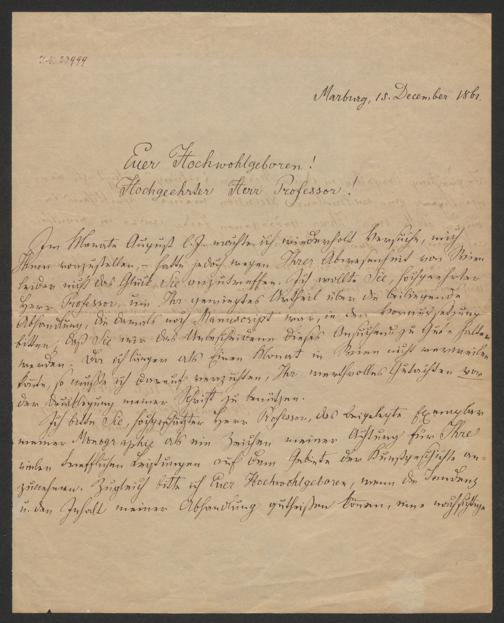 I.N. 27999
Marburg, 15. December 1861.
Euer Hochwohlgeboren!
Hochgeehrter Herr Professor!
Im Monate August l. J. machte ich wiederholt Versuche, mich
Ihnen vorzustellen, – hatte jedoch wegen Ihrer Abwesenheit von Wien
leider nicht das Glück, Sie anzutreffen. Ich wollte Sie, hochgeehrter
Herr Professor, um Ihr geneigtes Urtheil über die beiliegende
Abhandlung, die damals noch Manuscript war, in der Voraussetzung
bitten, daß Sie mir das Unbescheidene dieses Ansuchens zu Gute halten
werden. Da ich länger als einen Monat in Wien nicht verweilen
konnte, so mußte ich darauf verzichten, Ihr werthvolles Gutachten vor
der Drucklegung meiner Schrift zu benützen.
Ich bitte Sie, hochgeehrter Herr Professor, das beigelegte Exemplar
meiner Monographie als ein Zeichen meiner Achtung für Ihre
vielen trefflichen Leistungen auf dem Gebiete der Kunstgeschichte an-
zunehmen. Zugleich bitte ich Euer Hochwohlgeboren, wenn die Tendenz
u. den Inhalt meiner Abhandlung gutheißen können, eine